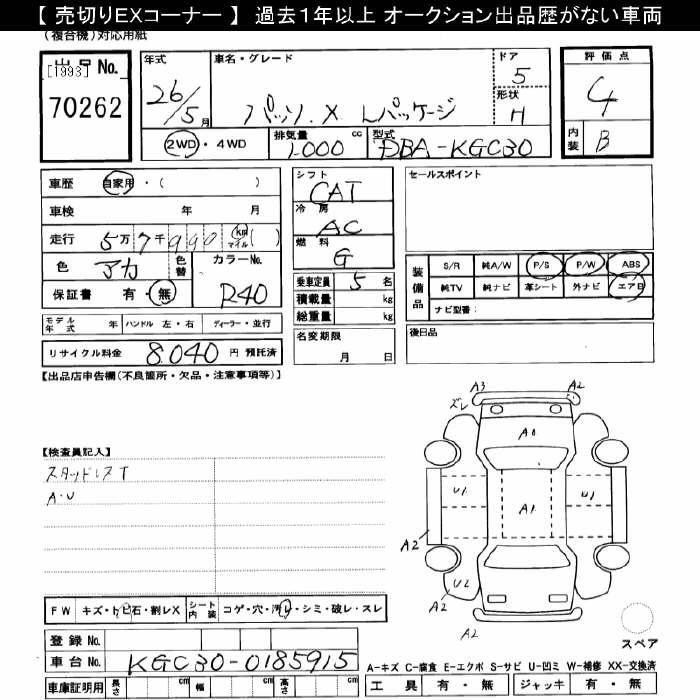 【 売切りEXコーナー 】 過去1年以上 オークション出品歴がない車両
(複合機)対応用紙
出品 No.
[1993]
70262
年式
26/5月
車名・グレード
パッソ . X Lパッケージ
ドア
5
形状
H
評価点
4
内装 B
2WD・4WD
排気量 1,000 cc
型式 DBA-KGC30
車歴 自家用・( )
車検 年 月
走行 5万7千990 km マイル ( )
色 アカ 色替
カラーNo. R40
保証書 有・無
シフト
CAT
冷房
AC
燃料
G
乗車定員 5 名
積載量 kg
総重量 kg
セールスポイント
装備品
S/R 純A/W P/S P/W ABS
純TV 純ナビ 革シート 外ナビ エアB
ナビ型番:
モデル年式 年 ハンドル 左・右 ディーラー・並行
リサイクル料金 8,040 円 預託済
名変期限
月 日
後日品
【出品店申告欄(不良箇所・欠品・注意事項等)】
【検査員記入】
スタッドレスT
A・U
A3
A2
ズレ
A2
U1
A1
U1
A2
U2
A2
A2
FW キズ・トビ石・割レX シート内装 コゲ・穴・汚レ・シミ・破レ・スレ
スペア
登録 No.
車台 No. KGC30-0185915
A-キズ C-腐食 E-エクボ S-サビ U-凹ミ W-補修 XX-交換済
車庫証明用 長さ cm 幅 cm 高さ cm
工具 有・無 ジャッキ 有・無